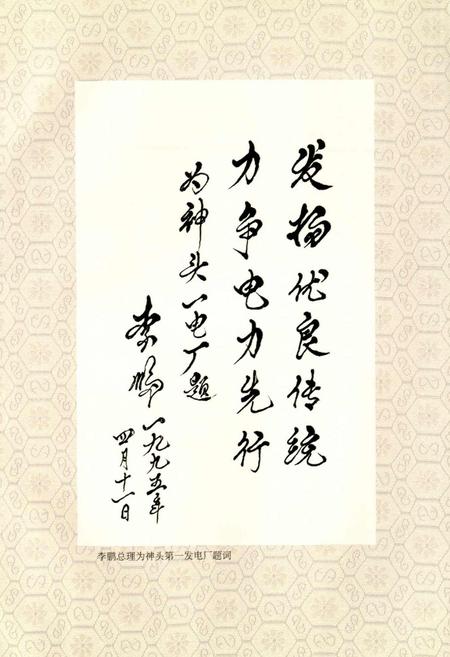 发扬优良传统
力争电力先行
为神头一电厂题
李鹏
一九九五年
四月十一日
李鹏总理为神头第一发电厂题词